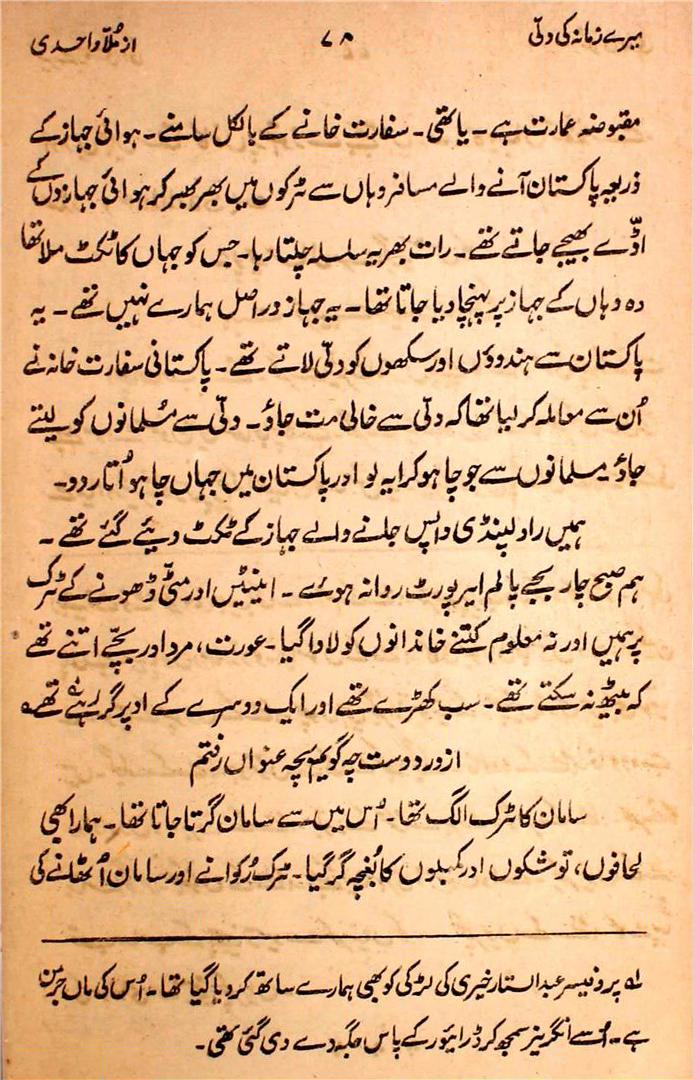 میرے زمانہ کی دلّی ۷۸ از مُلّا واحدی
مقبوضہ عمارت ہے۔ یا تھی۔ سفارت خانے کے بالکل سامنے۔ ہوائی جہاز کے
ذریعہ پاکستان آنے والے مسافر وہاں سے ٹرکوں میں بھر بھر کر ہوائی جہازوں کے
اڈّے بھیجے جاتے تھے۔ رات بھر یہ سلسلہ چلتا رہا۔ جس کو جہاں کا ٹکٹ ملا تھا
وہ وہاں کے جہاز پر پہنچا دیا جاتا تھا۔ یہ جہاز دراصل ہمارے نہیں تھے۔ یہ
پاکستان سے ہندوؤں اور سکھوں کو دلّی لاتے تھے۔ پاکستانی سفارت خانہ نے
اُن سے معاملہ کر لیا تھا کہ دلّی سے خالی مت جاؤ۔ دلّی سے مُسلمانوں کو لیتے
جاؤ مسلمانوں سے جو چاہو کرایہ لو اور پاکستان میں جہاں چاہو اُتار دو۔
ہمیں راولپنڈی واپس جانے والے جہاز کے ٹکٹ دیئے گئے تھے۔
ہم صبح چار بجے پالم ایرپورٹ روانہ ہوئے۔ اینٹیں اور مٹی ڈھونے کے ٹرک
پر ہمیں اور نہ معلوم کتنے خاندانوں کو لادا گیا۔ عورت، مرد اور بچّے اتنے تھے
کہ بیٹھ نہ سکتے تھے۔ سب کھڑے تھے اور ایک دوسرے کے اوپر گر رہے تھے۔
از در دوست چہ گویم بچہ عنواں رفتم
سامان کا ٹرک الگ تھا۔ اُس میں سے سامان گرتا جاتا تھا۔ ہمارا بھی
لحافوں، توشکوں اور کمبلوں کا بُغچہ گر گیا۔ ٹرک رُکوانے اور سامان اُٹھانے کی
لہ پروفیسر عبدالستار خیری کی لڑکی کو بھی ہمارے ساتھ کر دیا گیا تھا۔ اُس کی ماں جرمن
ہے۔ اُسے انگریز سمجھ کر ڈرائیور کے پاس جگہ دے دی گئی تھی۔